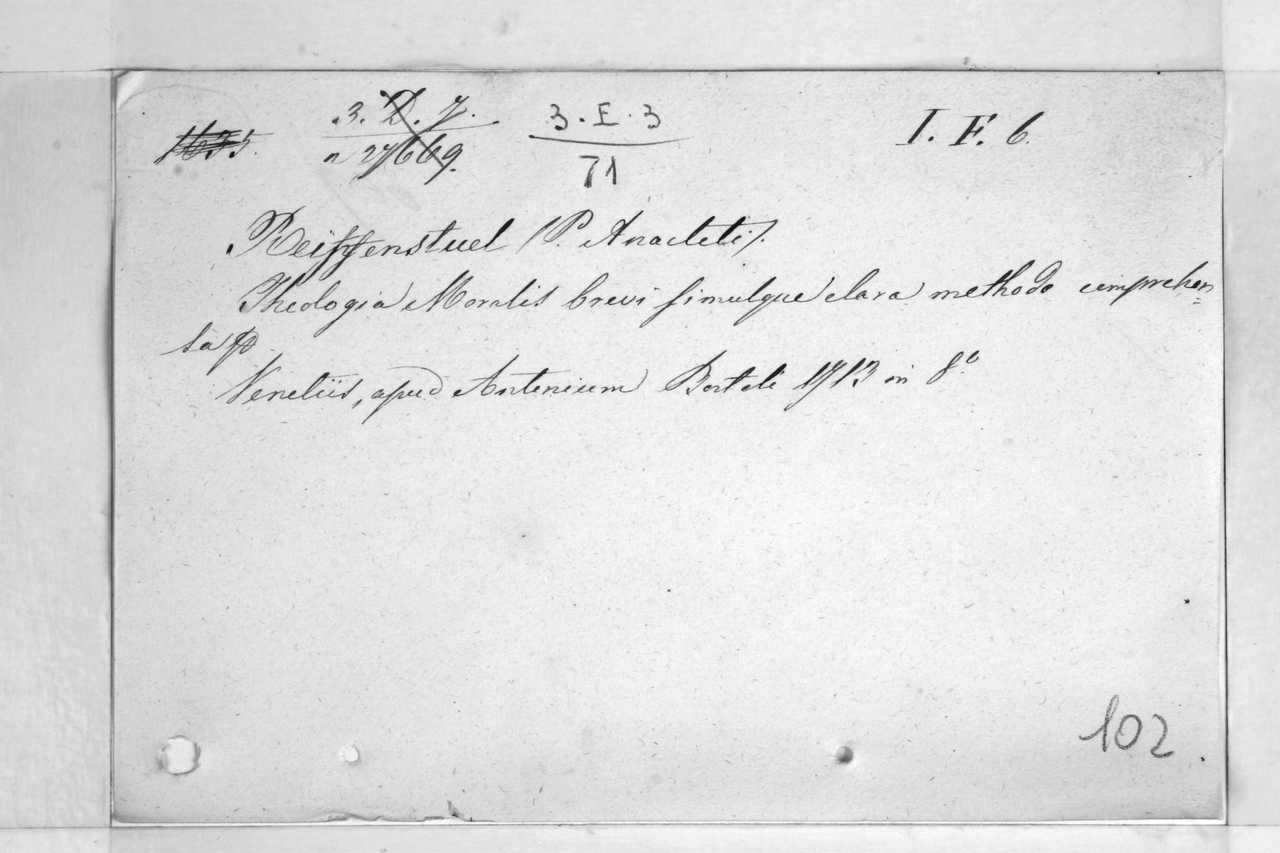 3. D. 7.
n 27669.
3.E.3
71
I. F. 6.
Reiffenstuel (P. Anacleti).
Theologia Moralis brevi simulque clara methodo comprehen=
sa
Venetiis, apud Antonium Bortoli 1713 in 8.º
102